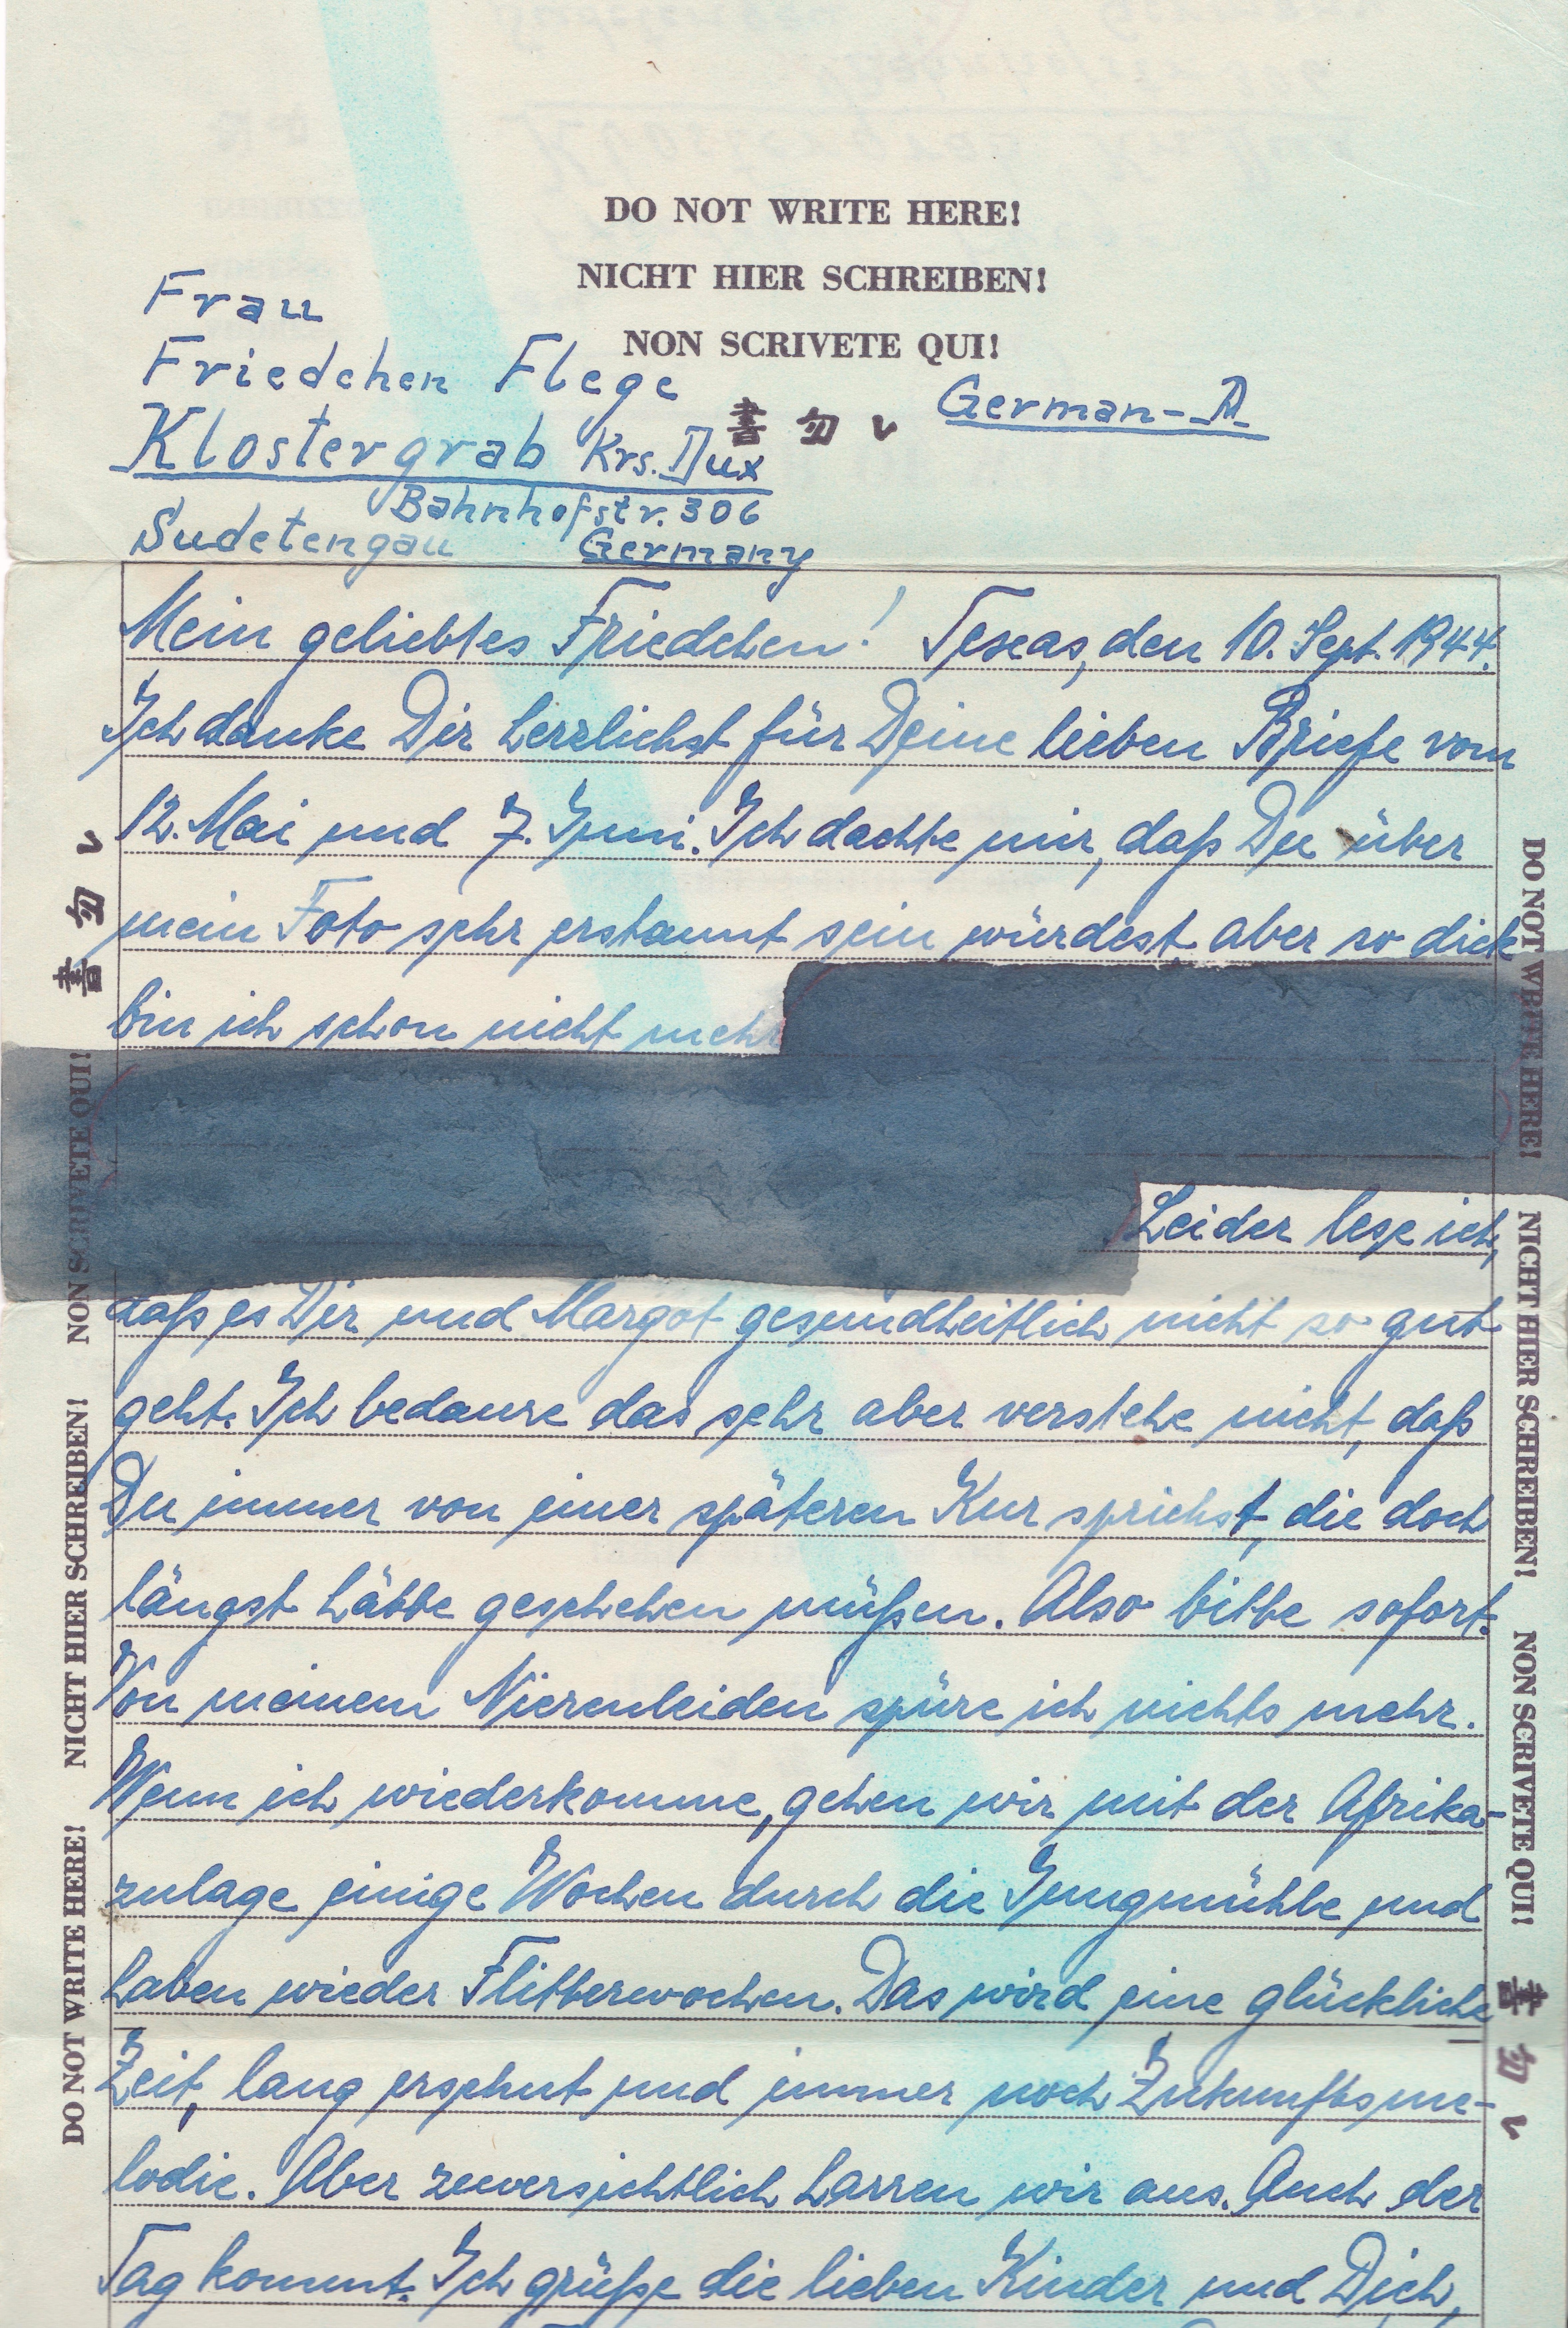 DO NOT WRITE HERE!
NICHT HIER SCHREIBEN!
NON SCRIVETE QUI!
書 勿 レ
Frau
Friedchen Flege
Klostergrab Krs. Dux
Bahnhofstr. 306
Sudetengau Germany
German-A.
Mein geliebtes Friedchen! Texas, den 10. Sept. 1944.
Ich danke Dir herzlichst für Deine lieben Briefe vom
12. Mai und 7. Juni. Ich dachte mir, daß Du über
mein Foto sehr erstaunt sein würdest, aber so dick
bin ich schon nicht mehr
Leider lese ich,
daß es Dir und Margot gesundheitlich nicht so gut
geht. Ich bedaure das sehr aber verstehe nicht, daß
Du immer von einer späteren Kur sprichst, die doch
längst hätte geschehen müßen. Also bitte sofort.
Von meinem Nierenleiden spüre ich nichts mehr.
Wenn ich wiederkomme, gehen wir mit der Afrika-
zulage einige Wochen durch die Jungmühle und
haben wieder Flitterwochen. Das wird eine glückliche
Zeit, lang ersehnt und immer noch Zukunftsme-
lodie. Aber zuversichtlich harren wir aus. Auch der
Tag kommt. Ich grüße die lieben Kinder und Dich,
DO NOT WRITE HERE! NICHT HIER SCHREIBEN! NON SCRIVETE QUI! 書 勿 レ
DO NOT WRITE HERE! NICHT HIER SCHREIBEN! NON SCRIVETE QUI! 書 勿 レ